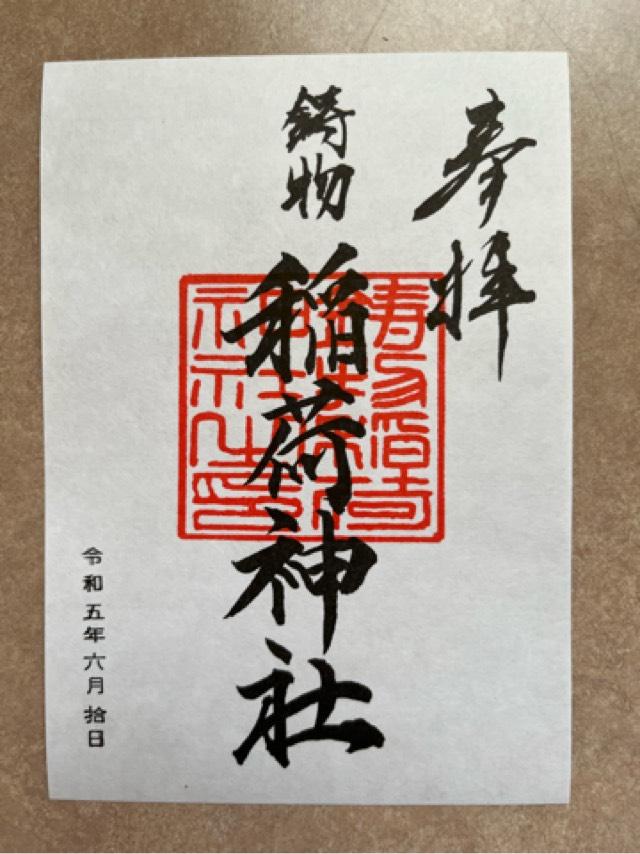 奉拝
鋳物
稲荷神社
令和五年六月拾日